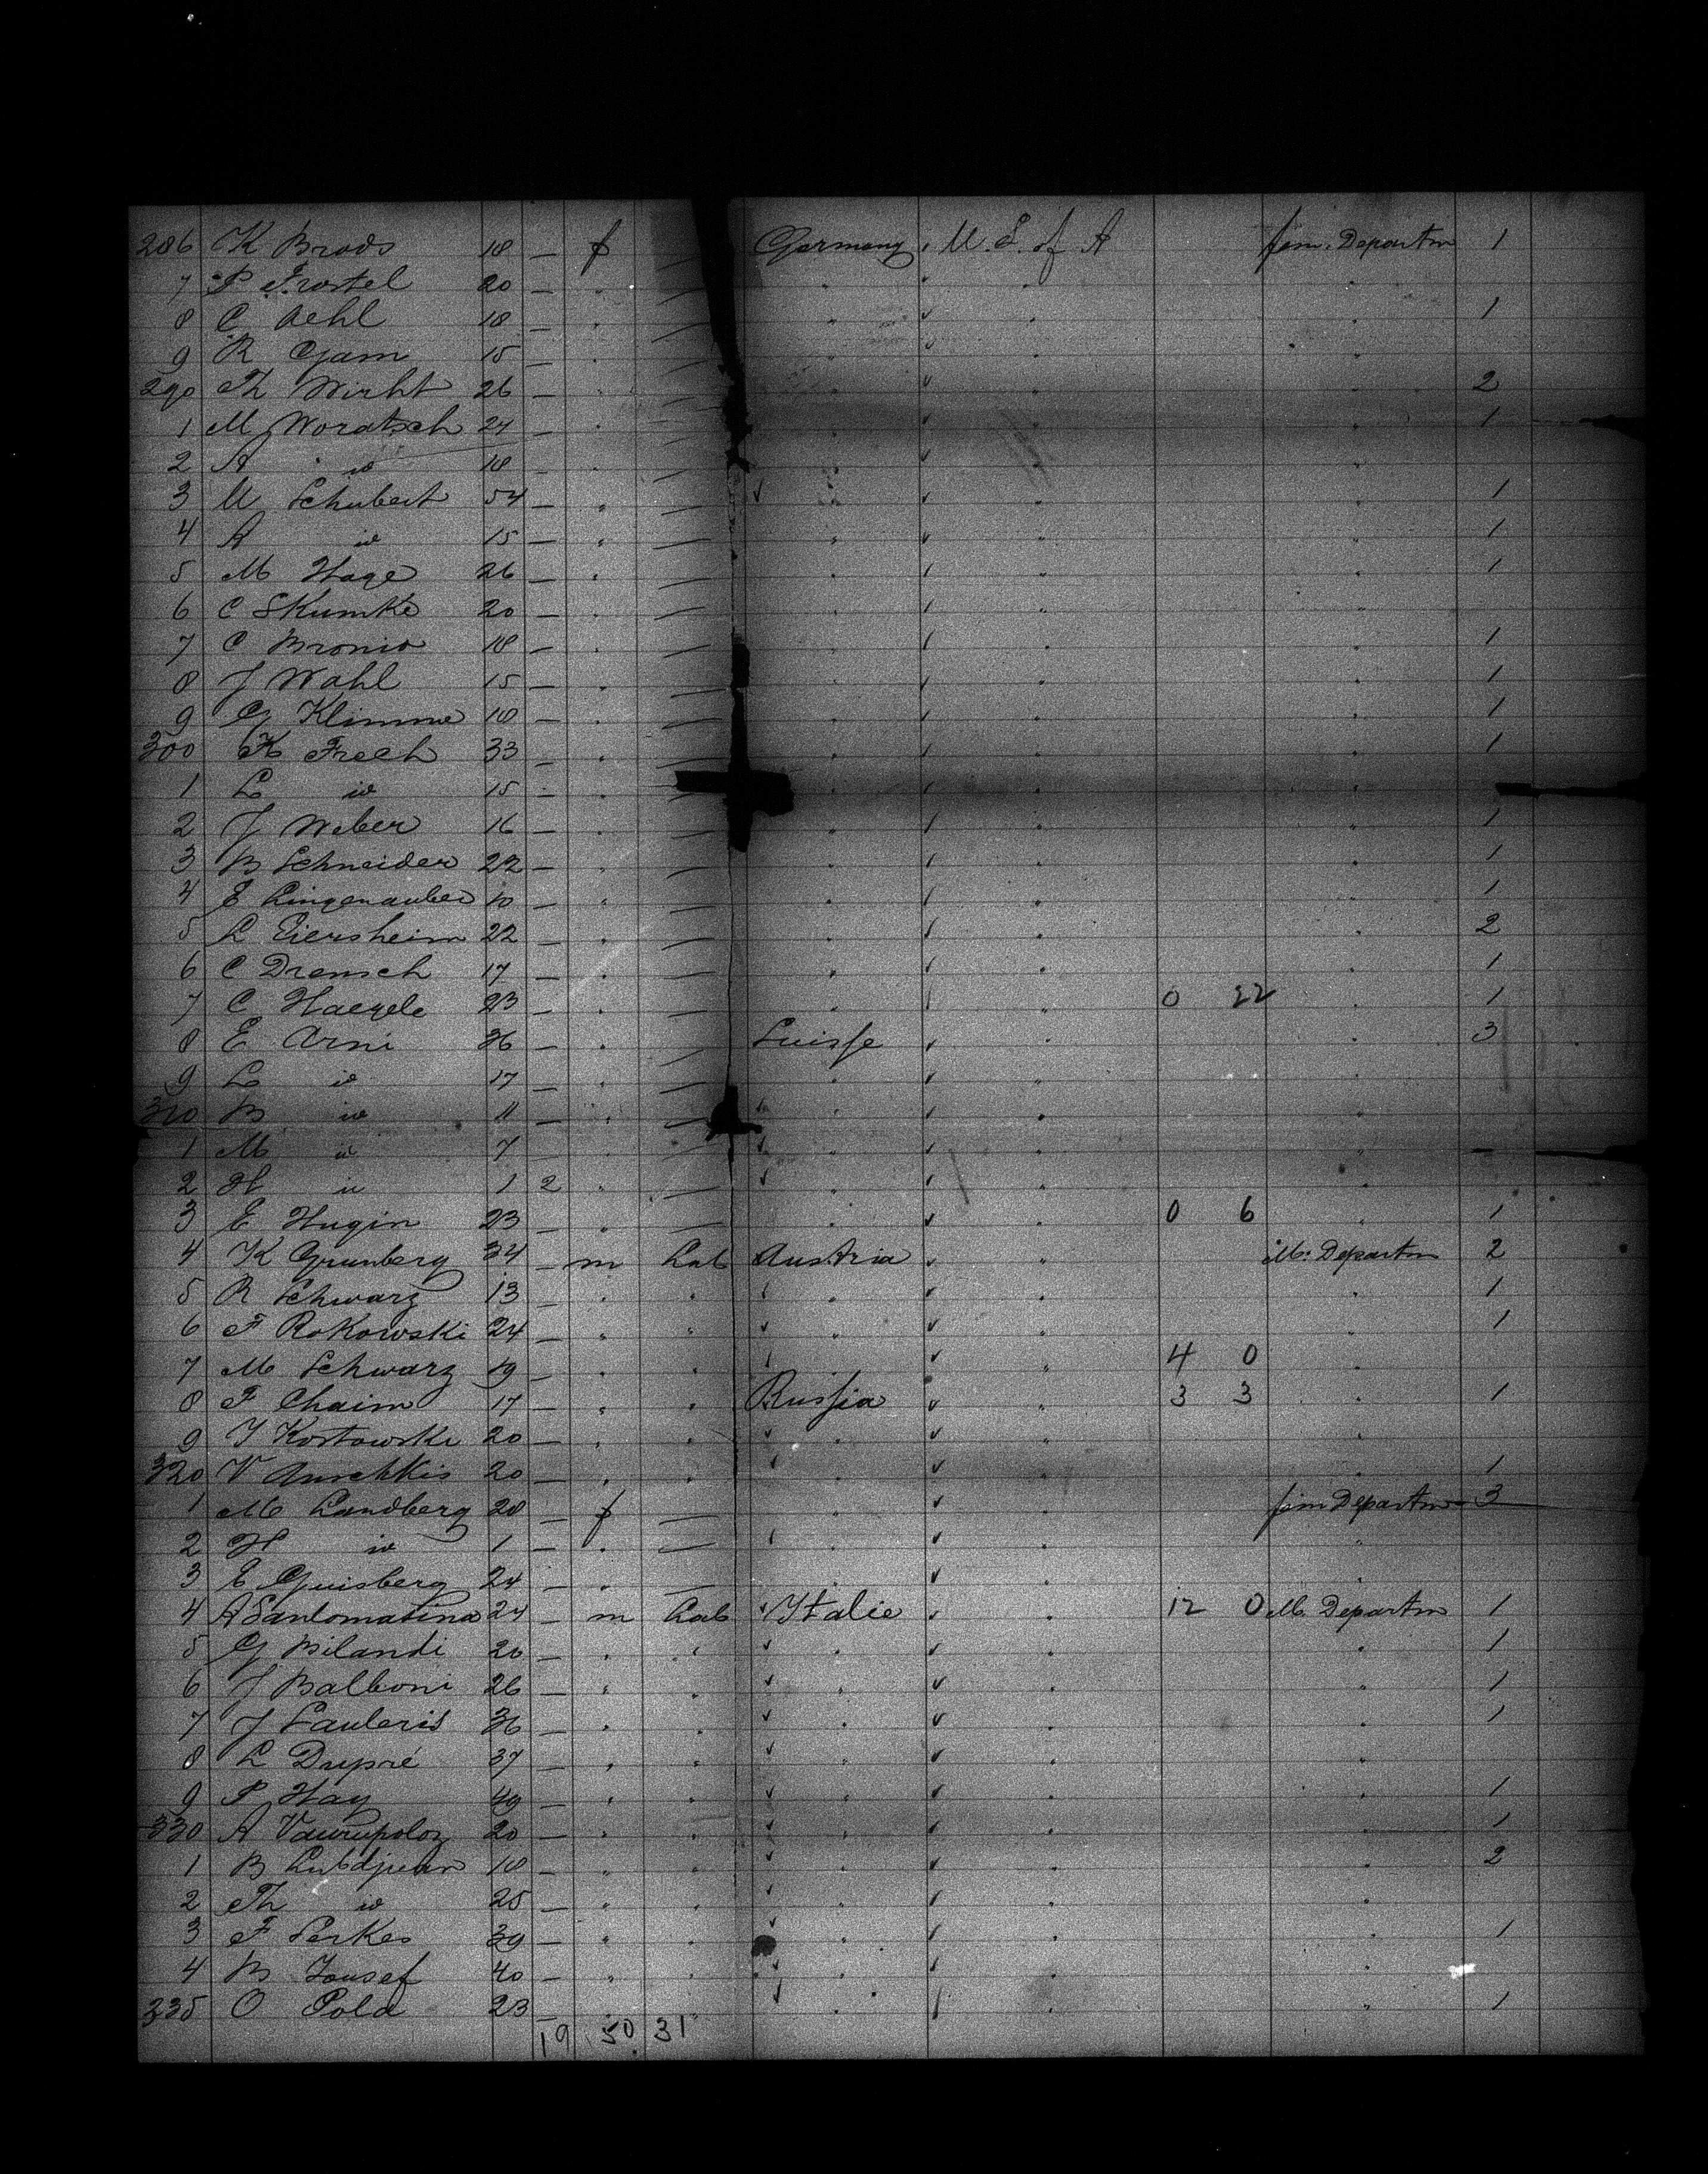 286 K Brods 18 — f — Germany U. S. of A fem. Departm 1
7 P Frostel 20 — " — " " "
8 C Aehl 18 — " — " " " 1
9 R Gam 15 — " — " " "
290 Th Wirht 26 — " — " " " 2
1 M Woratsch 24 — " — " " " 1
2 A id 18 — " — " " "
3 M Schubert 54 — " — " " " 1
4 A id 15 — " — " " " 1
5 M Hage 26 — " — " " " 1
6 C Skumke 20 — " — " " "
7 C Bronio 18 — " — " " " 1
8 J Wahl 15 — " — " " " 1
9 G Klimme 18 — " — " " " 1
300 K Frech 33 — " — " " " 1
1 L id 15 — " — " " "
2 J Weber 16 — " — " " " 1
3 B Schneider 22 — " — " " " 1
4 E Lingenauber — " — " " " 1
5 L Eiersheim 22 — " — " " " 2
6 C Drensch 17 — " — " " " 1
7 C Haegele 23 — " — " " 0 22 " 1
8 E Arni 36 — " — Suisse " " 3
9 L id 17 — " — " " "
310 B id 11 — " — " " "
1 M id 7 — " — " " "
2 H id 1 2 " — " " "
3 E Hugin 23 — " — " " 0 6 " 1
4 K Grunberg 34 — m Lab Austria " M. Departm 2
5 R Schwarz 13 — " " " " " 1
6 F Rokowski 24 — " " " " " 1
7 M Schwarz 19 — " " " " 4 0 "
8 F Chaim 17 — " " Russia " 3 3 " 1
9 J Kostowski 20 — " " " " "
320 V Auschkis 20 — " " " " " 1
1 M Landberg 28 — f — " " fem Departm 3
2 H id 1 — " — " " "
3 E Guisberg 24 — " — " " "
4 A Santomatina 24 — m Lab Italie " 12 0 M. Departm 1
5 G Bilandi 26 — " " " " " 1
6 J Balboni 26 — " " " " " 1
7 J Sauleris 36 — " " " " " 1
8 L Dupré 37 — " " " " "
9 P Hay 49 — " " " " " 1
330 A 20 — " " " " " 1
1 B 18 — " " " " " 2
2 Th id 25 — " " " " "
3 F Serkes 39 — " " " " " 1
4 B Jousef 40 — " " " " "
335 O Pola 23 — " " " " " 1
19 50 31